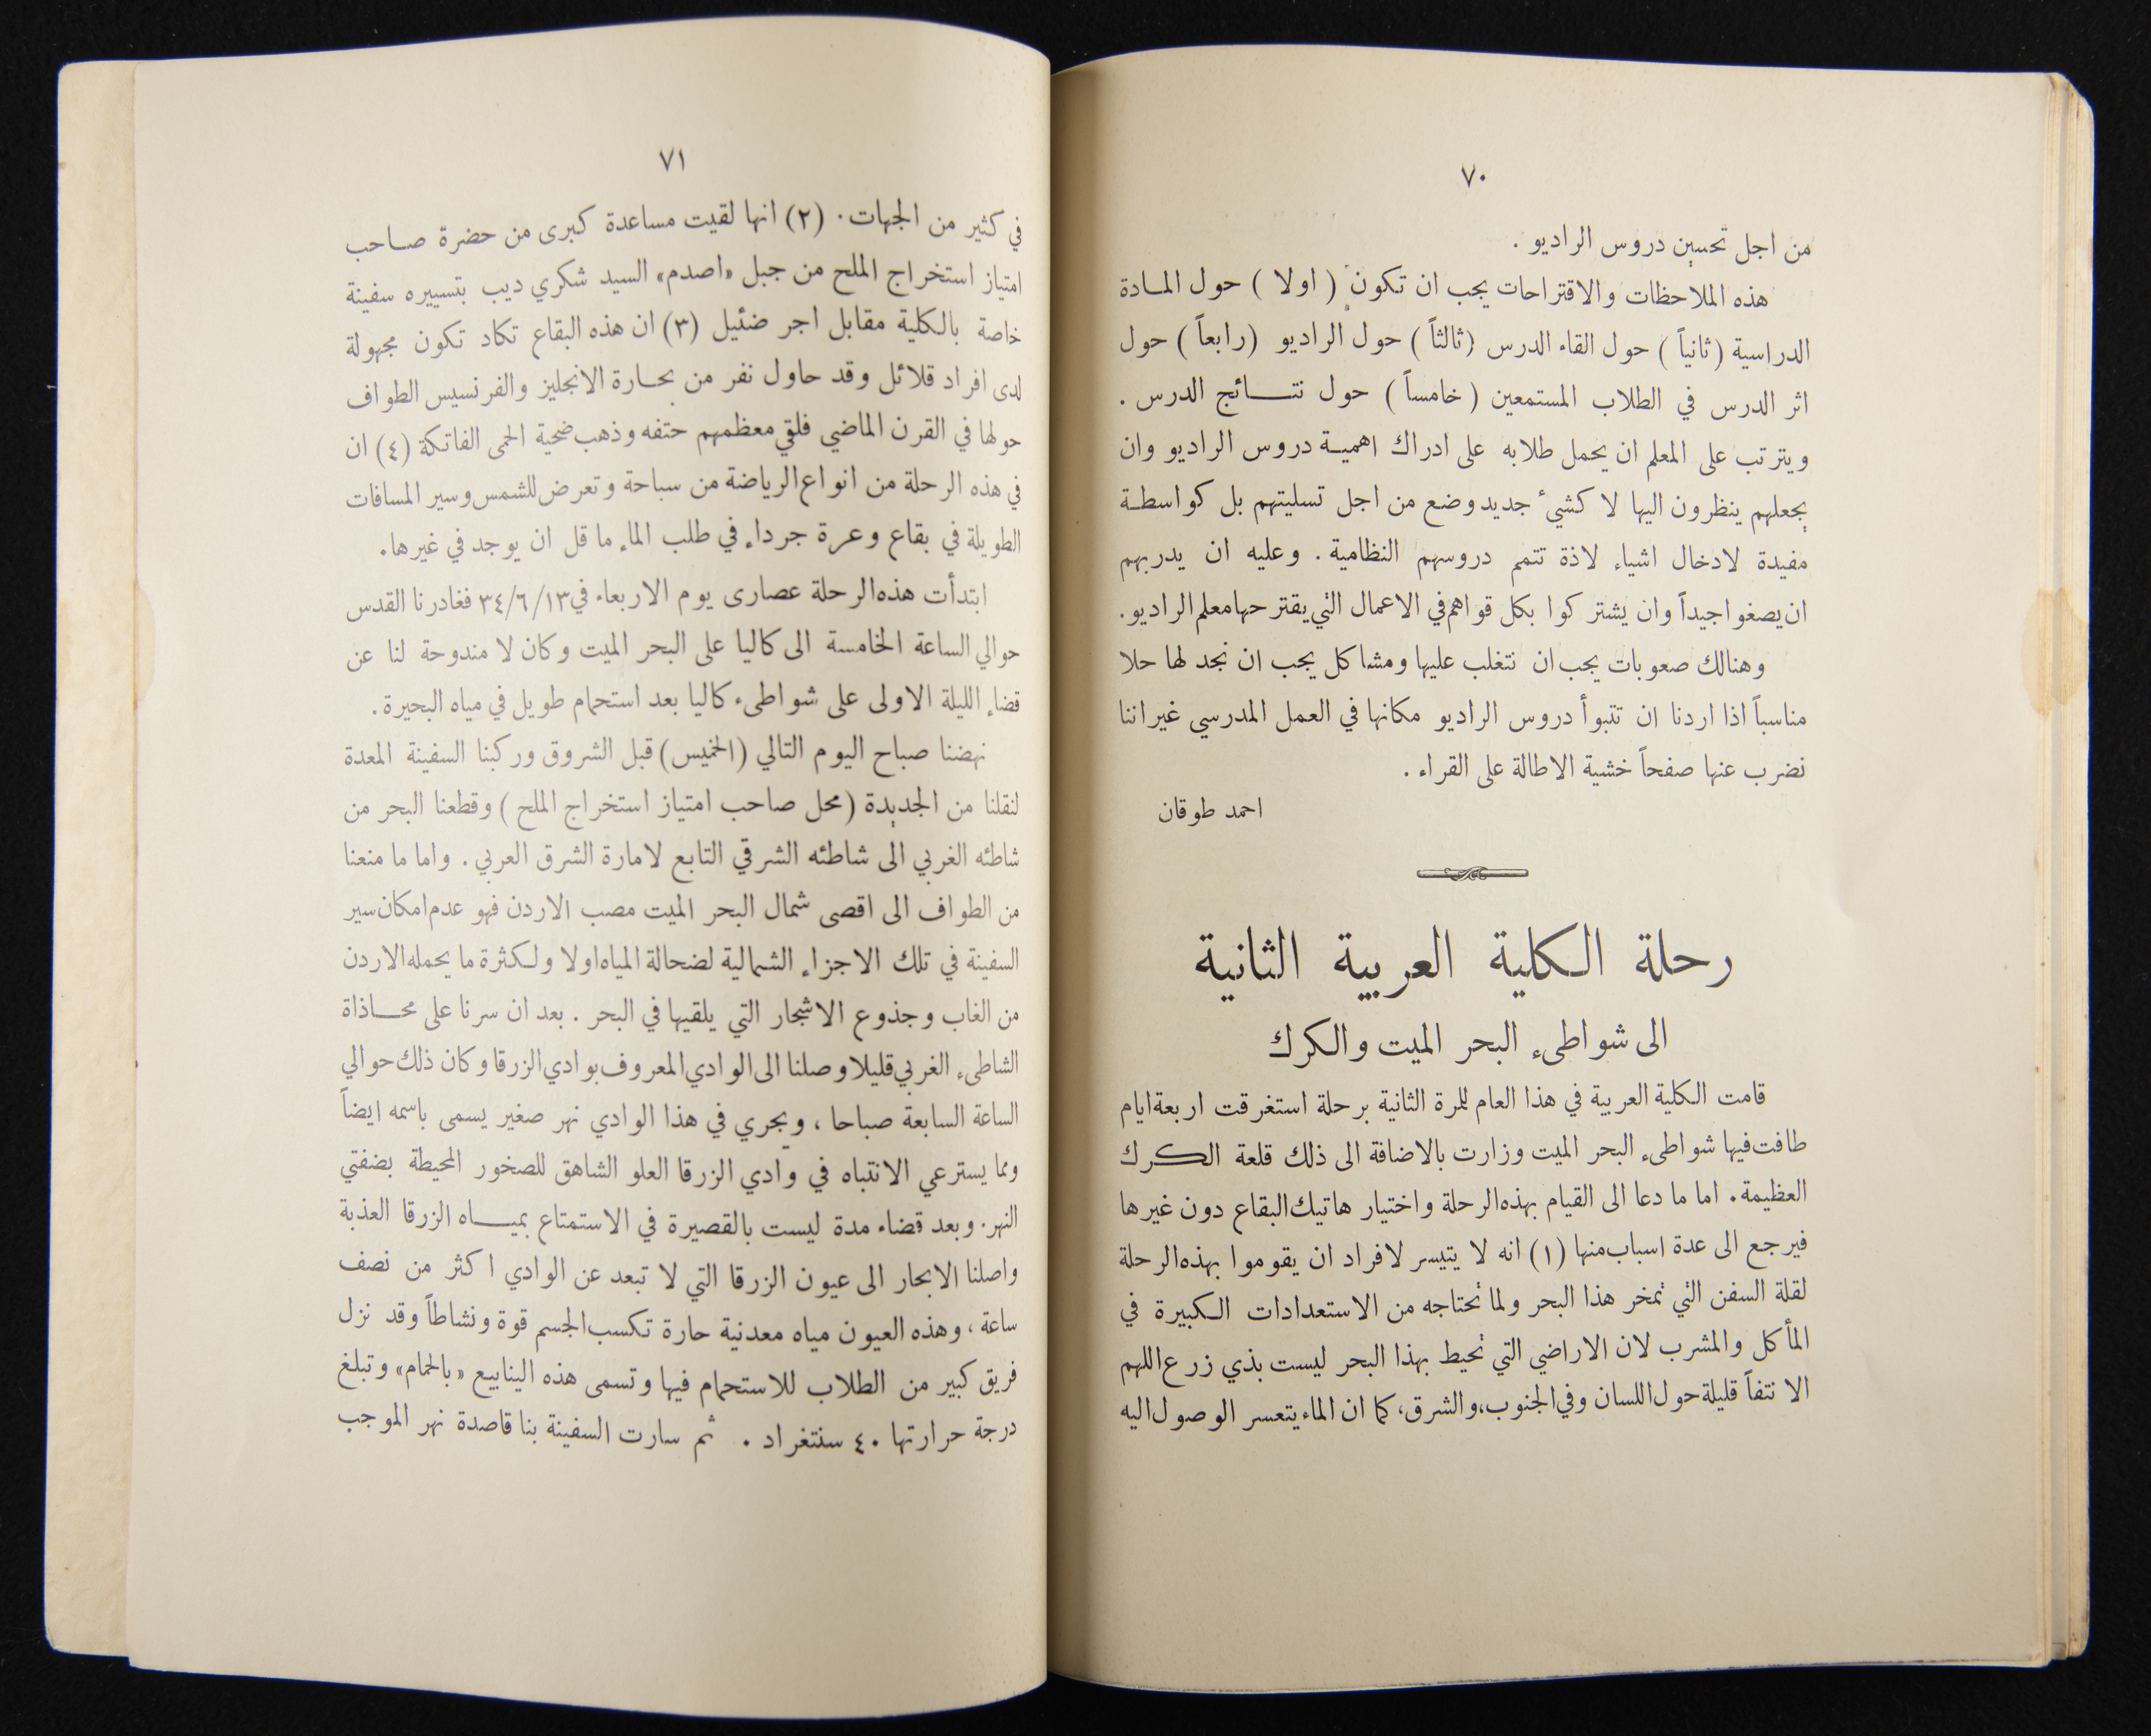 ٧٠
من اجل تحسين دروس الراديو .
هذه الملاحظات والاقتراحات يجب ان تكون ( اولا ) حول المادة
الدراسية ( ثانياً ) حول القاء الدرس ( ثالثاً ) حول الراديو ( رابعاً ) حول
اثر الدرس في الطلاب المستمعين ( خامساً ) حول نتائج الدرس .
ويترتب على المعلم ان يحمل طلابه على ادراك اهمية دروس الراديو وان
يجعلهم ينظرون اليها لا كشيء جديد وضع من اجل تسليتهم بل كواسطة
مفيدة لادخال اشياء لاذة تتمم دروسهم النظامية . وعليه ان يدربهم
ان يصغوا جيداً وان يشتركوا بكل قواهم في الاعمال التي يقترحها معلم الراديو .
وهنالك صعوبات يجب ان نتغلب عليها ومشاكل يجب ان نجد لها حلا
مناسباً اذا اردنا ان تتبوأ دروس الراديو مكانها في العمل المدرسي غير اننا
نضرب عنها صفحاً خشية الاطالة على القراء .
احمد طوقان
رحلة الكلية العربية الثانية
الى شواطىء البحر الميت والكرك
قامت الكلية العربية في هذا العام للمرة الثانية برحلة استغرقت اربعة ايام
طافت فيها شواطىء البحر الميت وزارت بالاضافة الى ذلك قلعة الكرك
العظيمة . اما ما دعا الى القيام بهذه الرحلة واختيار هاتيك البقاع دون غيرها
فيرجع الى عدة اسباب منها (١) انه لا يتيسر لافراد ان يقوموا بهذه الرحلة
لقلة السفن التي تمخر هذا البحر ولما تحتاجه من الاستعدادات الكبيرة في
المأكل والمشرب لان الاراضي التي تحيط بهذا البحر ليست بذي زرع اللهم
الا نتفاً قليلة حول اللسان وفي الجنوب، والشرق، كما ان الماء يتعسر الوصول اليه
٧١
في كثير من الجهات . (٢) انها لقيت مساعدة كبرى من حضرة صاحب
امتياز استخراج الملح من جبل «اصدم» السيد شكري ديب بتسييره سفينة
خاصة بالكلية مقابل اجر ضئيل (٣) ان هذه البقاع تكاد تكون مجهولة
لدى افراد قلائل وقد حاول نفر من بحارة الانجليز والفرنسيس الطواف
حولها في القرن الماضي فلقي معظمهم حتفه وذهب ضحية الحمى الفاتكة (٤) ان
في هذه الرحلة من انواع الرياضة من سباحة وتعرض للشمس وسير المسافات
الطويلة في بقاع وعرة جرداء في طلب الماء ما قل ان يوجد في غيرها .
ابتدأت هذه الرحلة عصارى يوم الاربعاء في ٣٤/٦/١٣ فغادرنا القدس
حوالي الساعة الخامسة الى كاليا على البحر الميت وكان لا مندوحة لنا عن
قضاء الليلة الاولى على شواطىء كاليا بعد استحمام طويل في مياه البحيرة .
نهضنا صباح اليوم التالي (الخميس) قبل الشروق وركبنا السفينة المعدة
لنقلنا من الجديدة ( محل صاحب امتياز استخراج الملح ) وقطعنا البحر من
شاطئه الغربي الى شاطئه الشرقي التابع لامارة الشرق العربي . واما ما منعنا
من الطواف الى اقصى شمال البحر الميت مصب الاردن فهو عدم امكان سير
السفينة في تلك الاجزاء الشمالية لضحالة المياه اولا ولكثرة ما يحمله الاردن
من الغاب وجذوع الاشجار التي يلقيها في البحر . بعد ان سرنا على محاذاة
الشاطىء الغربي قليلا وصلنا الى الوادي المعروف بوادي الزرقا وكان ذلك حوالي
الساعة السابعة صباحا ، ويجري في هذا الوادي نهر صغير يسمى باسمه ايضاً
ومما يسترعي الانتباه في وادي الزرقا العلو الشاهق للصخور المحيطة بضفتي
النهر . وبعد قضاء مدة ليست بالقصيرة في الاستمتاع بمياه الزرقا العذبة
واصلنا الابحار الى عيون الزرقا التي لا تبعد عن الوادي اكثر من نصف
ساعة ، وهذه العيون مياه معدنية حارة تكسب الجسم قوة ونشاطاً وقد نزل
فريق كبير من الطلاب للاستحمام فيها وتسمى هذه الينابيع «بالحمام» وتبلغ
درجة حرارتها ٤٠ سنتغراد . ثم سارت السفينة بنا قاصدة نهر الموجب